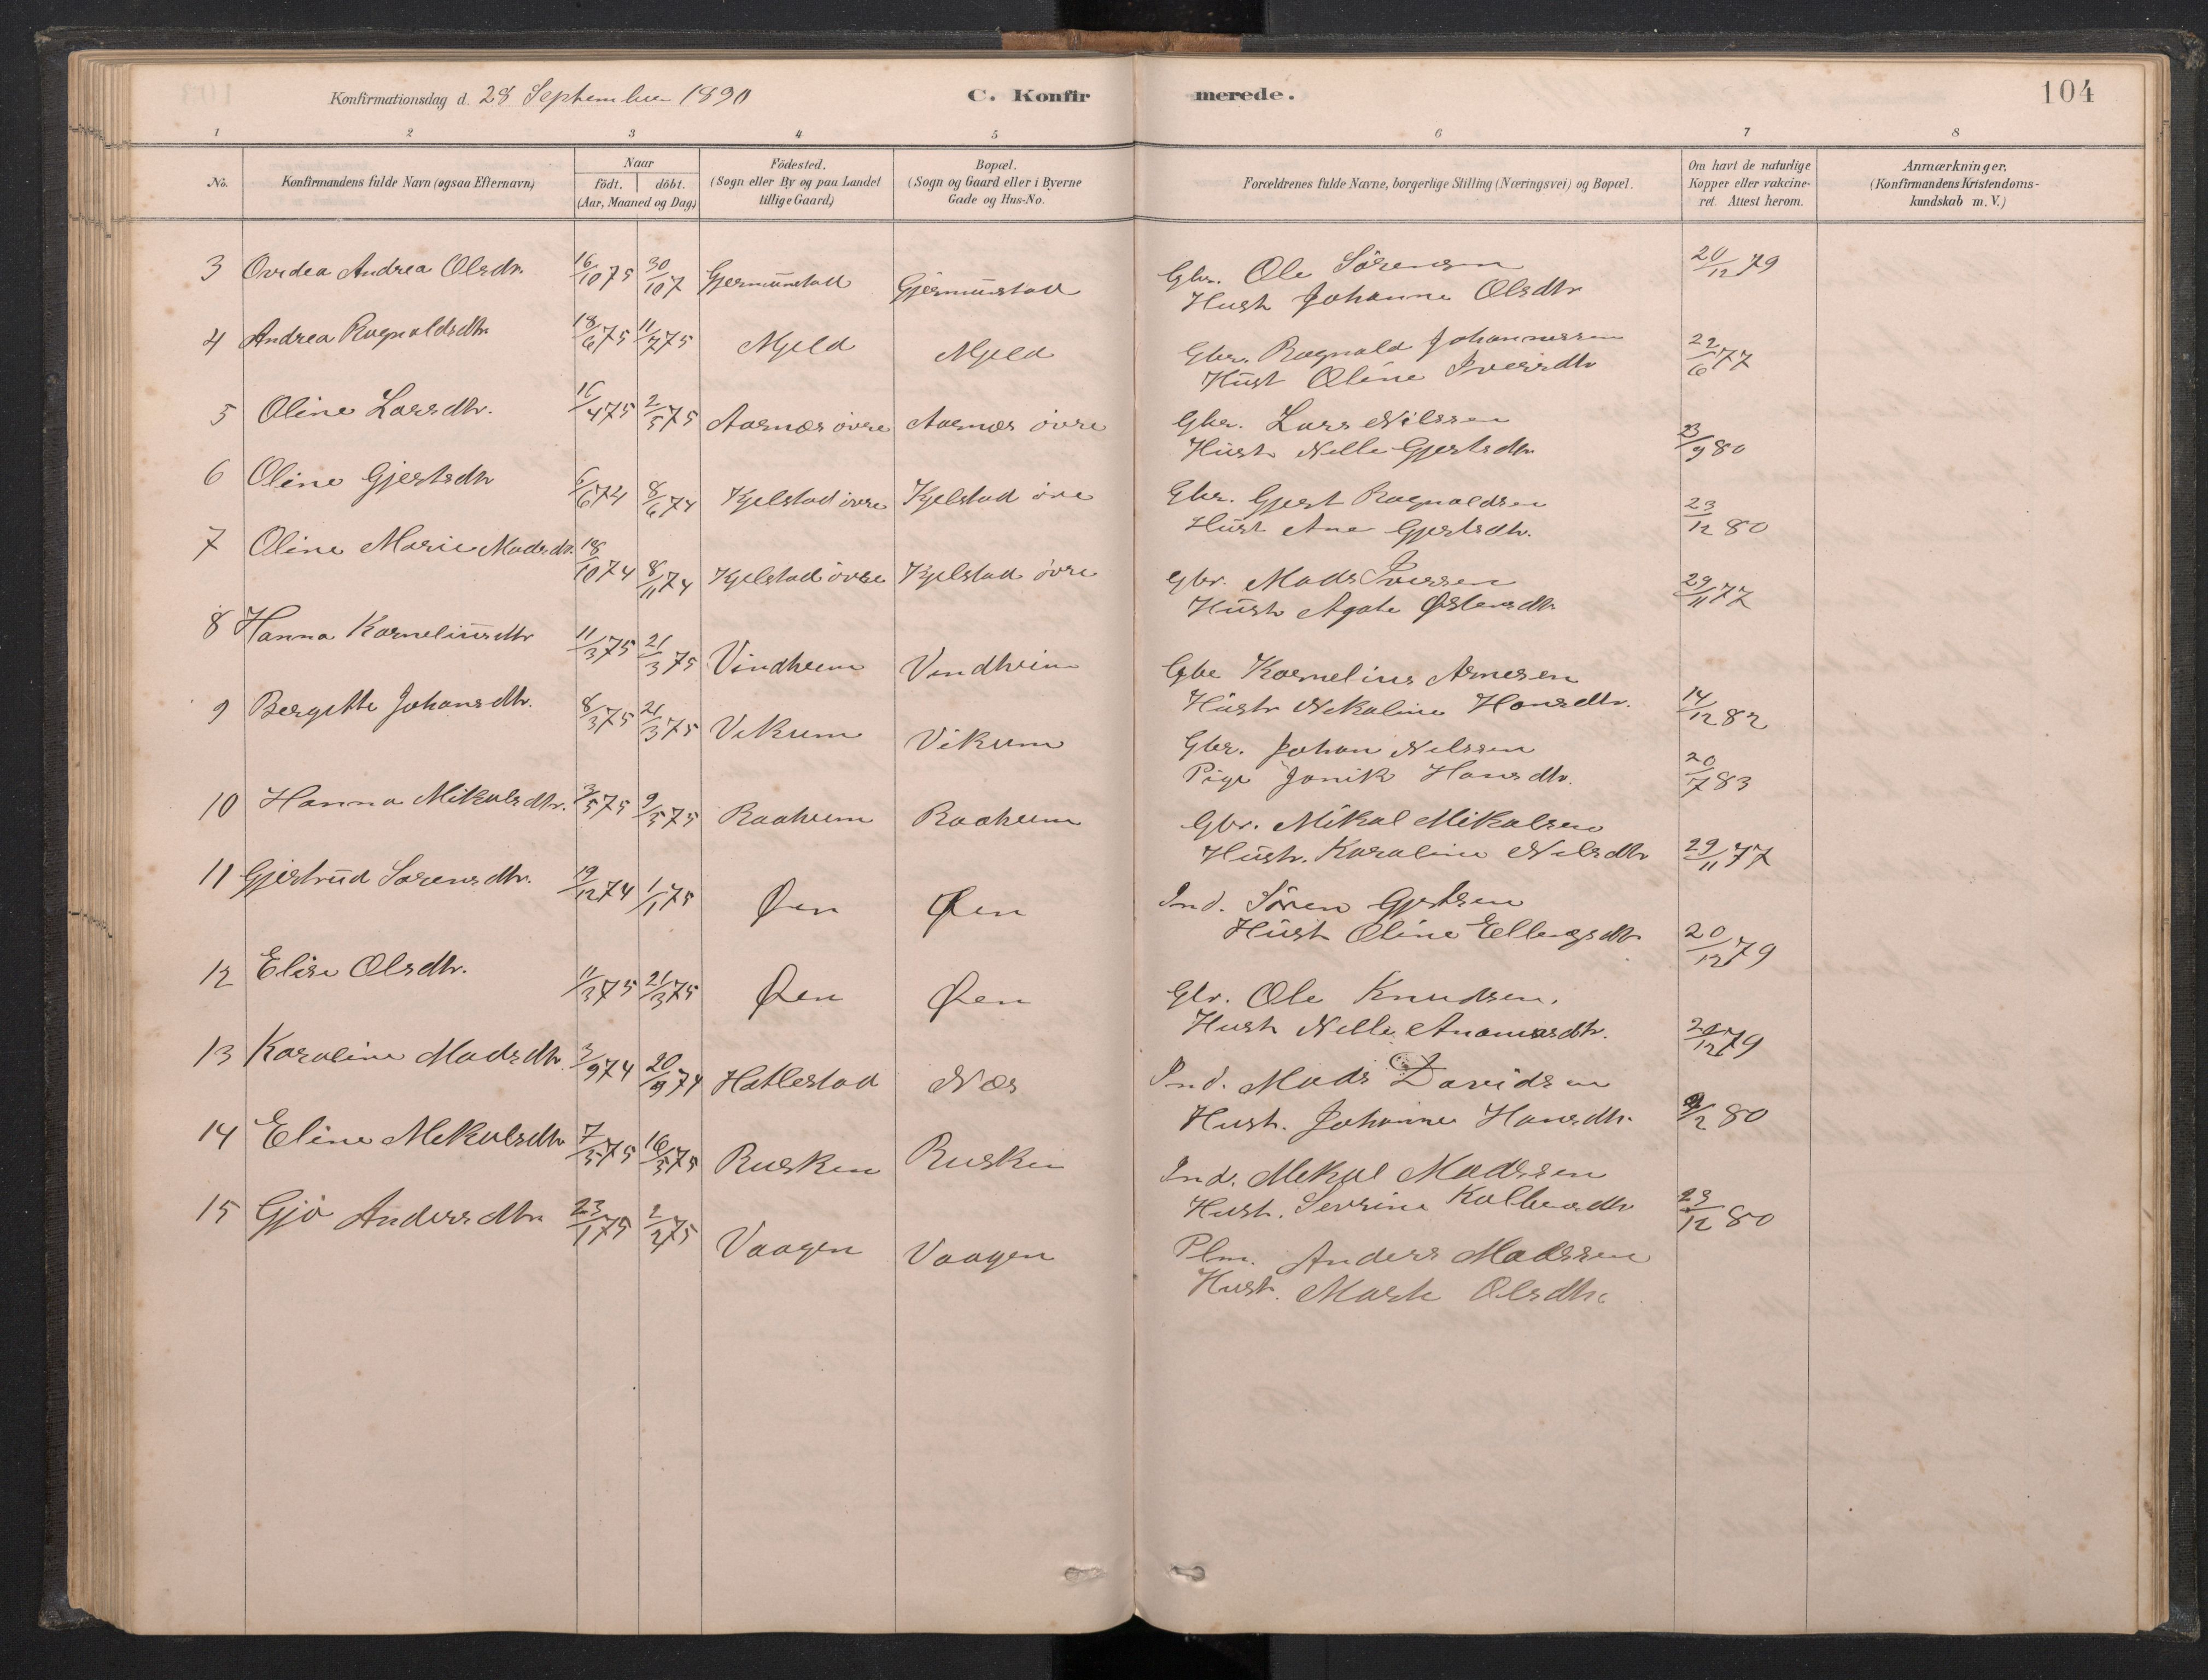 Konfirmationsdag d. 28 September 1890 C. Konfirmerede. 104
1 2 3 4 5 6 7 8
No. Konfirmandens fulde Navn (ogsaa Efternavn) Naar födt. döbt. (Aar, Maaned og Dag.) Födested. (Sogn eller By og paa Landet tillige Gaard) Bopæl. (Sogn og Gaard eller i Byerne Gade og Hus-No. Forældrenes fulde Navne, borgerlige Stilling (Næringsvei) og Bopæl. Om havt de naturlige Kopper eller vakcineret. Attest herom. Anmærkninger, (Konfirmandens Kristendomskundskab m.V.)
3 Ovidea Andrea Olsdtr. 16/10 75 30/10 7 Gjermunstad Gjermunstad Gbr. Ole Sörensen 20/12 79
Hust Johanne Olsdtr
4 Andrea Ragnaldsdtr. 18/6 75 11/7 75 Mjeld Mjeld Gbr. Ragnald Johannessen 22/6 77
Hust Oline Iversdtr
5 Oline Larsdtr. 16/4 75 2/5 75 Aarnæs övre Aarnæs övre Gbr. Lars Nilssen 23/9 80
Hustr Nelle Gjertsdtr.
6 Oline Gjertsdtr 6/6 74 8/6 74 Kjelstad övre Kjelstad öve Gbr. Gjert Ragnaldsen 23/12 80
Hust Ane Gjertsdtr.
7 Oline Marie Madsdtr. 18/10 74 8/11 74 Kjelstad övre Kjelstad övre Gbr. Mads Iversen 29/11 77
Hustr Agate Østensdtr.
8 Hanna Korneliusdtr 11/3 75 21/3 75 Vindheim Vindheim Gbr Kornelius Arnesen 14/12 82
Hustr Nikoline Hansdtr.
9 Bergitte Johansdtr. 8/3 75 21/3 75 Vikum Vikum Gbr. Johan Nelssen 20/7 83
Pige Janik Hansdtr.
10 Hanna Mikalsdtr. 3/5 75 9/5 75 Raaheim Raaheim Gbr. Mikal Mikalsen 29/11 77
Hustr. Karoline Nelsdtr
11 Gjertrud Sorensdtr. 19/12 74 1/1 75 Øen Øen Ind. Sören Gjertsen 20/12 79
Hust Oline Ellingsdtr
12 Elise Olsdtr. 11/3 75 21/3 75 Øen Øen Gbr. Ole Knudsen. 20/12 79
Hust Nelle Ananiasdtr.
13 Karoline Madsdtr. 3/9 74 20/9 74 Hatlestad Næs Ind. Mads Davidsen 9/2 80
Hust. Johanne Hansdtr.
14 Eline Mekalsdtr 7/5 75 16/5 75 Rusken Rusken Ind. Mekal Madssen 23/12 80
Hust. Serine Kolbensdtr
15 Gjö Andersdtr. 23/1 75 2/2 75 Vaagen Vaagen Plm. Anders Madssen
Hust. Marte Olsdtr.